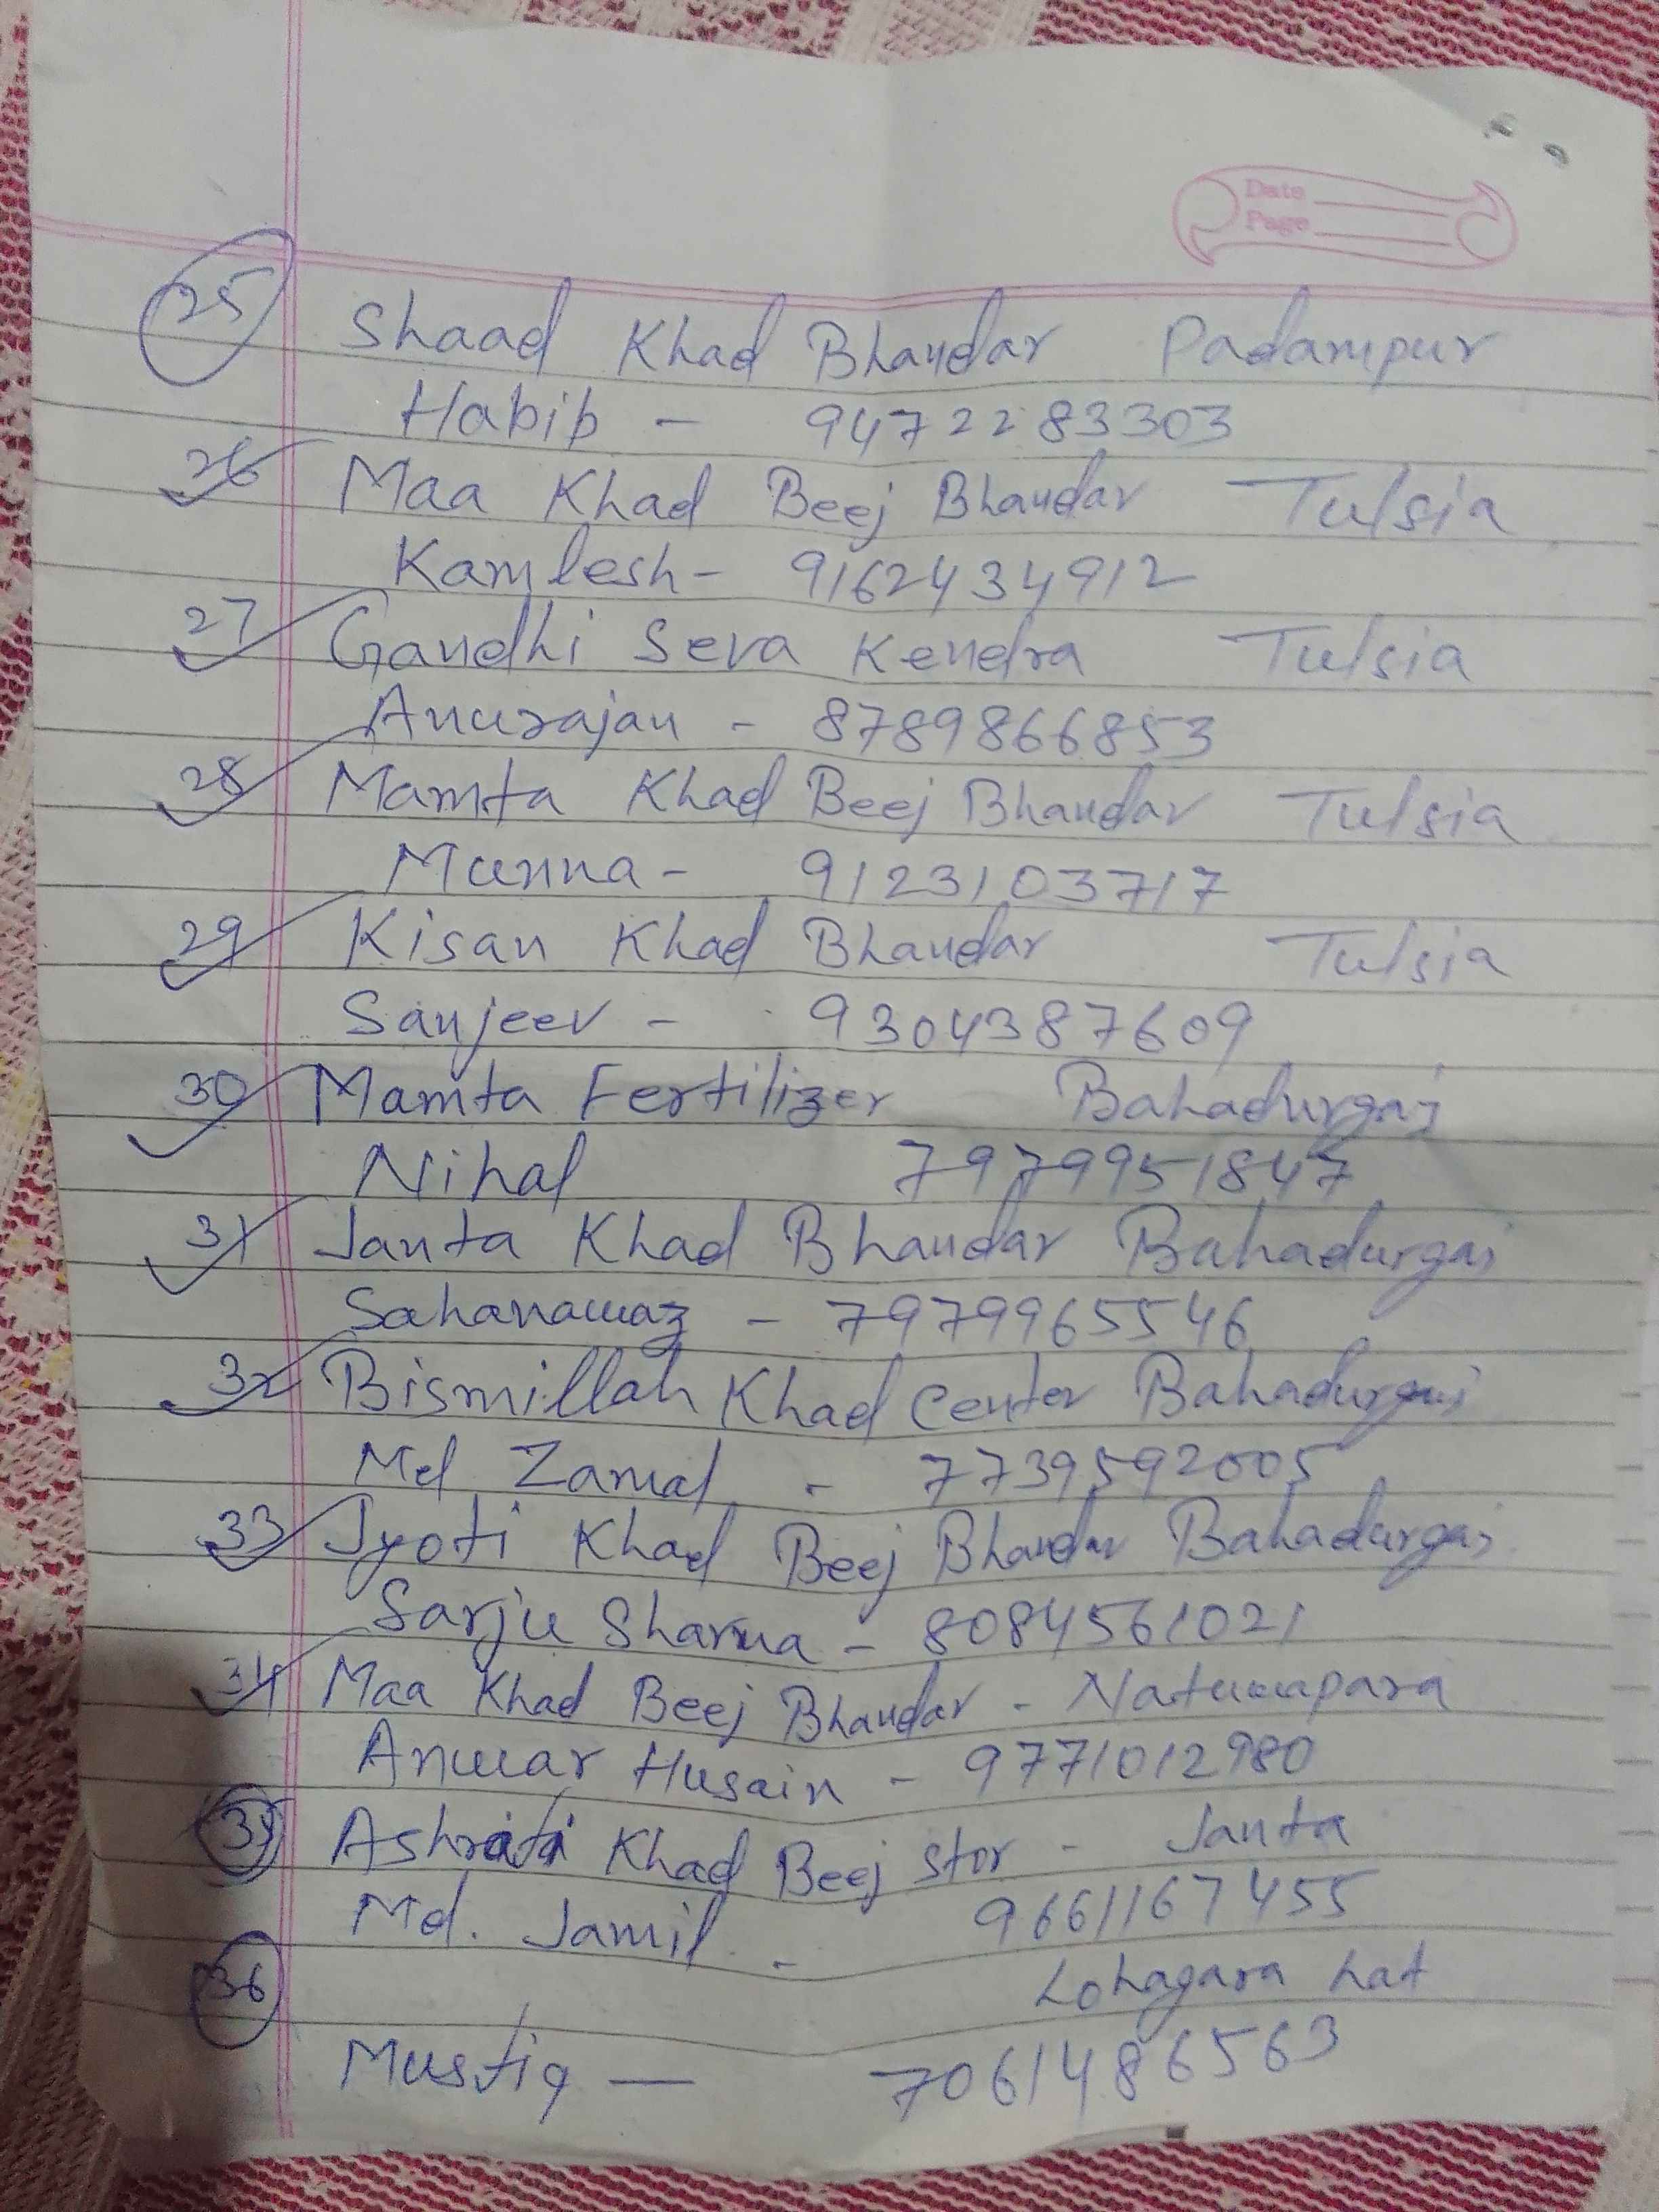 Date
Page
25 Shaad Khad Bhandar Padampur
Habib - 9472283303
26 Maa Khad Beej Bhandar Tulsia
Kamlesh - 9162434912
27 Gandhi Seva Kendra Tulsia
Anurajan - 8789866853
28 Mamta Khad Beej Bhandar Tulsia
Munna - 9123103717
29 Kisan Khad Bhandar Tulsia
Sanjeev - 9304387609
30 Mamta Fertilizer Bahadurgaj
Nihal 7979951847
31 Janta Khad Bhandar Bahadurgaj
Sahanawaz - 7979965546
32 Bismillah Khad Center Bahadurganj
Md Zamal - 7739592005
33 Jyoti Khad Beej Bhandar Bahadurgaj
Sarju Sharma - 8084561021
34 Maa Khad Beej Bhandar - Natuwapara
Anwar Husain - 9771012980
35 Khad Beej Stor - Janta
Md. Jamil - 9661167455
36 Lohagara hat
Mustiq — 7061486563